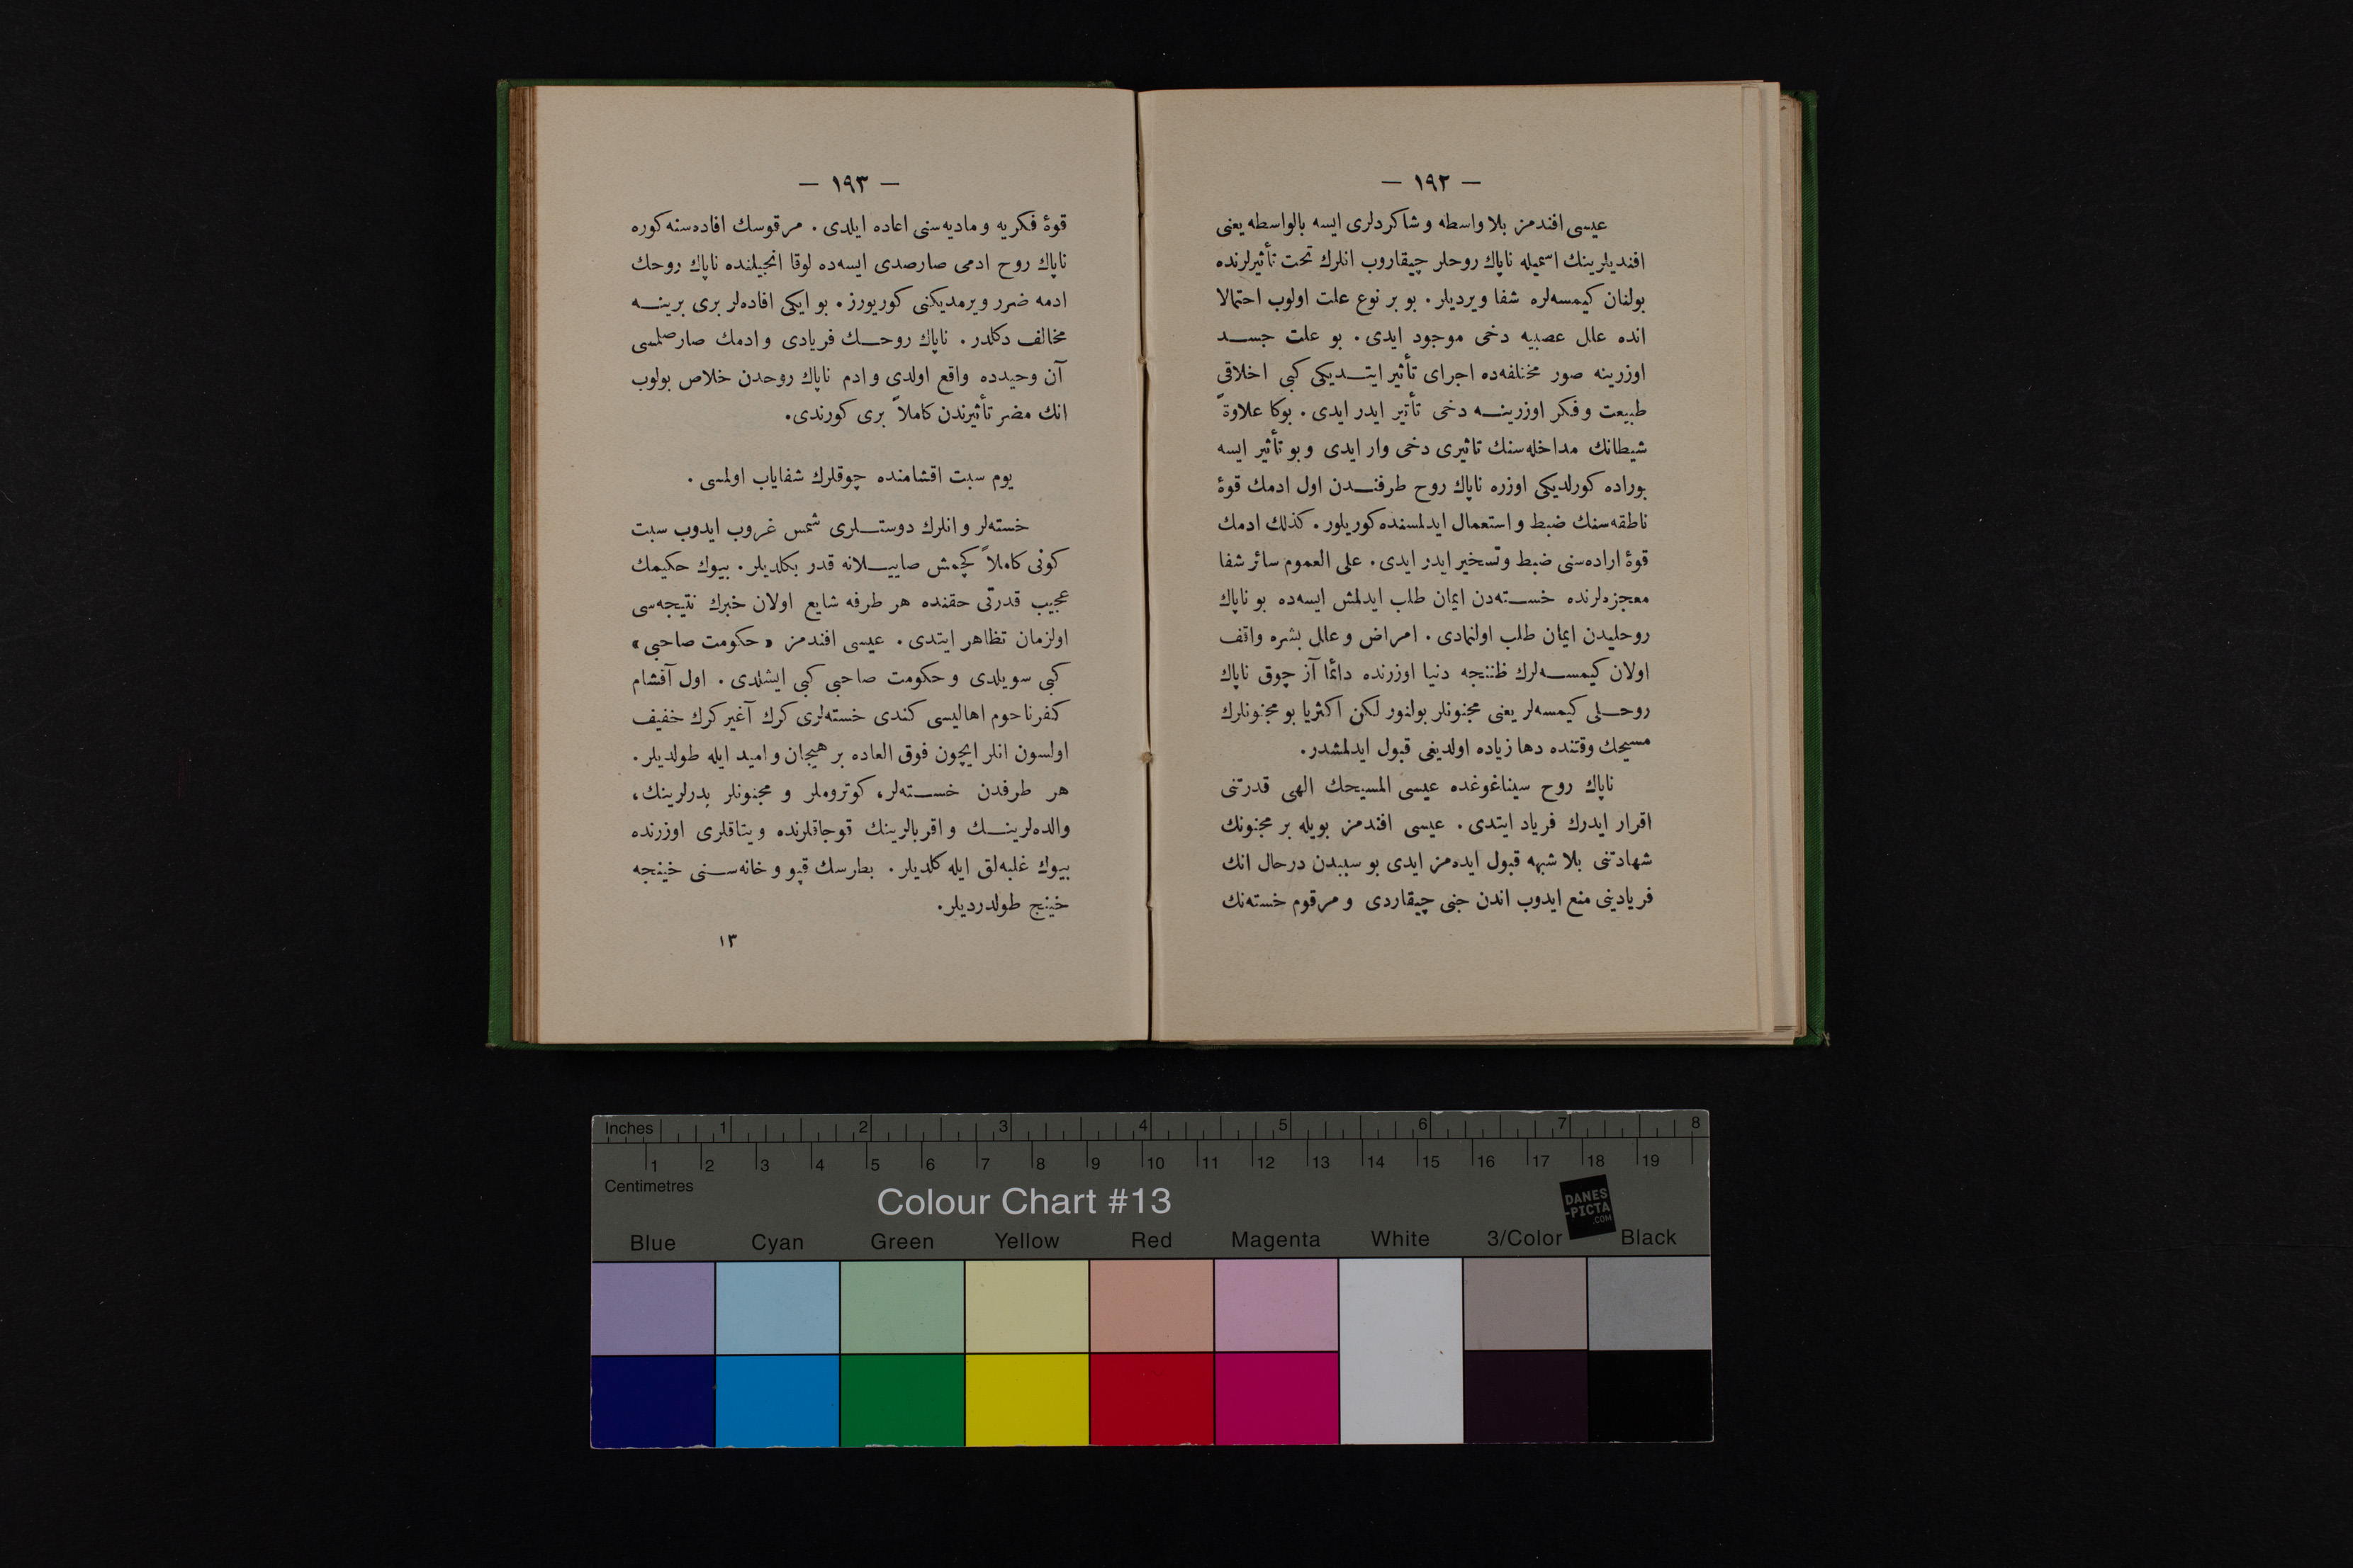 — ١٩٢ —
عيسى افندمز بلا واسطه و شاكردلرى ايسه بالواسطه يعنى
افنديلرينك اسميله ناپاك روحلر چيقاروب انلرك تحت تأثيرلرنده
بولنان كيمسه‌لره شفا ويرديلر. بو بر نوع علت اولوب احتمالا
انده علل عصبيه دخى موجود ايدى. بو علت جسد
اوزرينه صور مختلفه‌ده اجراى تأثير ايتديكى كبى اخلاقى
طبيعت و فكر اوزرينه دخى تأثير ايدر ايدى. بوكا علاوةً
شيطانك مداخله‌سنك تاثيرى دخى وار ايدى و بو تأثير ايسه
بوراده كورلديكى اوزره ناپاك روح طرفندن اول ادمك قوۀ
ناطقه‌سنك ضبط و استعمال ايدلمسنده كوريلور. كذلك ادمك
قوۀ اراده‌سنى ضبط و تسخير ايدر ايدى. على العموم سائر شفا
معجزه‌لرنده خسته‌دن ايمان طلب ايدلمش ايسه‌ده بو ناپاك
روحليدن ايمان طلب اولنمادى. امراض و علل بشره واقف
اولان كيمسه‌لرك ظننجه دنيا اوزرنده دائما آز چوق ناپاك
روحلى كيمسه‌لر يعنى مجنونلر بولنور لكن اكثريا بو مجنونلرك
مسيحك وقتنده دها زياده اولديغى قبول ايدلمشدر.
ناپاك روح سيناغوغده عيسى المسيحك الهى قدرتنى
اقرار ايدرك فرياد ايتدى. عيسى افندمز بويله بر مجنونك
شهادتنى بلا شبهه قبول ايده‌مز ايدى بو سببدن درحال انك
فريادينى منع ايدوب اندن جنى چيقاردى و مرقوم خسته‌نك
— ١٩٣ —
قوۀ فكريه و ماديه‌سنى اعاده ايلدى. مرقوسك افاده‌سنه كوره
ناپاك روح ادمى صارصدى ايسه‌ده لوقا انجيلنده ناپاك روحك
ادمه ضرر ويرمديكنى كوريورز. بو ايكى افاده‌لر برى برينه
مخالف دكلدر. ناپاك روحك فريادى و ادمك صارصلمسى
آن وحيدده واقع اولدى و ادم ناپاك روحدن خلاص بولوب
انك مضر تأثيرندن كاملاً برى كورندى.
يوم سبت اقشامنده چوقلرك شفاياب اولمسى.
خسته‌لر و انلرك دوستلرى شمس غروب ايدوب سبت
كونى كاملاً كچمش صاييلانه قدر بكلديلر. بيوك حكيمك
عجيب قدرتى حقنده هر طرفه شايع اولان خبرك نتيجه‌سى
اولزمان تظاهر ايتدى. عيسى افندمز «حكومت صاحبى»
كبى سويلدى و حكومت صاحبى كبى ايشلدى. اول آقشام
كفرناحوم اهاليسى كندى خسته‌لرى كرك آغير كرك خفيف
اولسون انلر ايچون فوق العاده بر هيجان و اميد ايله طولديلر.
هر طرفدن خسته‌لر، كوتروملر و مجنونلر پدرلرينك،
والده‌لرينك و اقربالرينك قوجاقلرنده و يتاقلرى اوزرنده
بيوك غلبه‌لق ايله كلديلر. بطرسك قپو و خانه‌سنى خينجه
خينج طولدرديلر.
١٣
Inches 1 2 3 4 5 6 7 8
1 2 3 4 5 6 7 8 9 10 11 12 13 14 15 16 17 18 19
Centimetres
Colour Chart #13
DANES
-PICTA
.COM
Blue Cyan Green Yellow Red Magenta White 3/Color Black